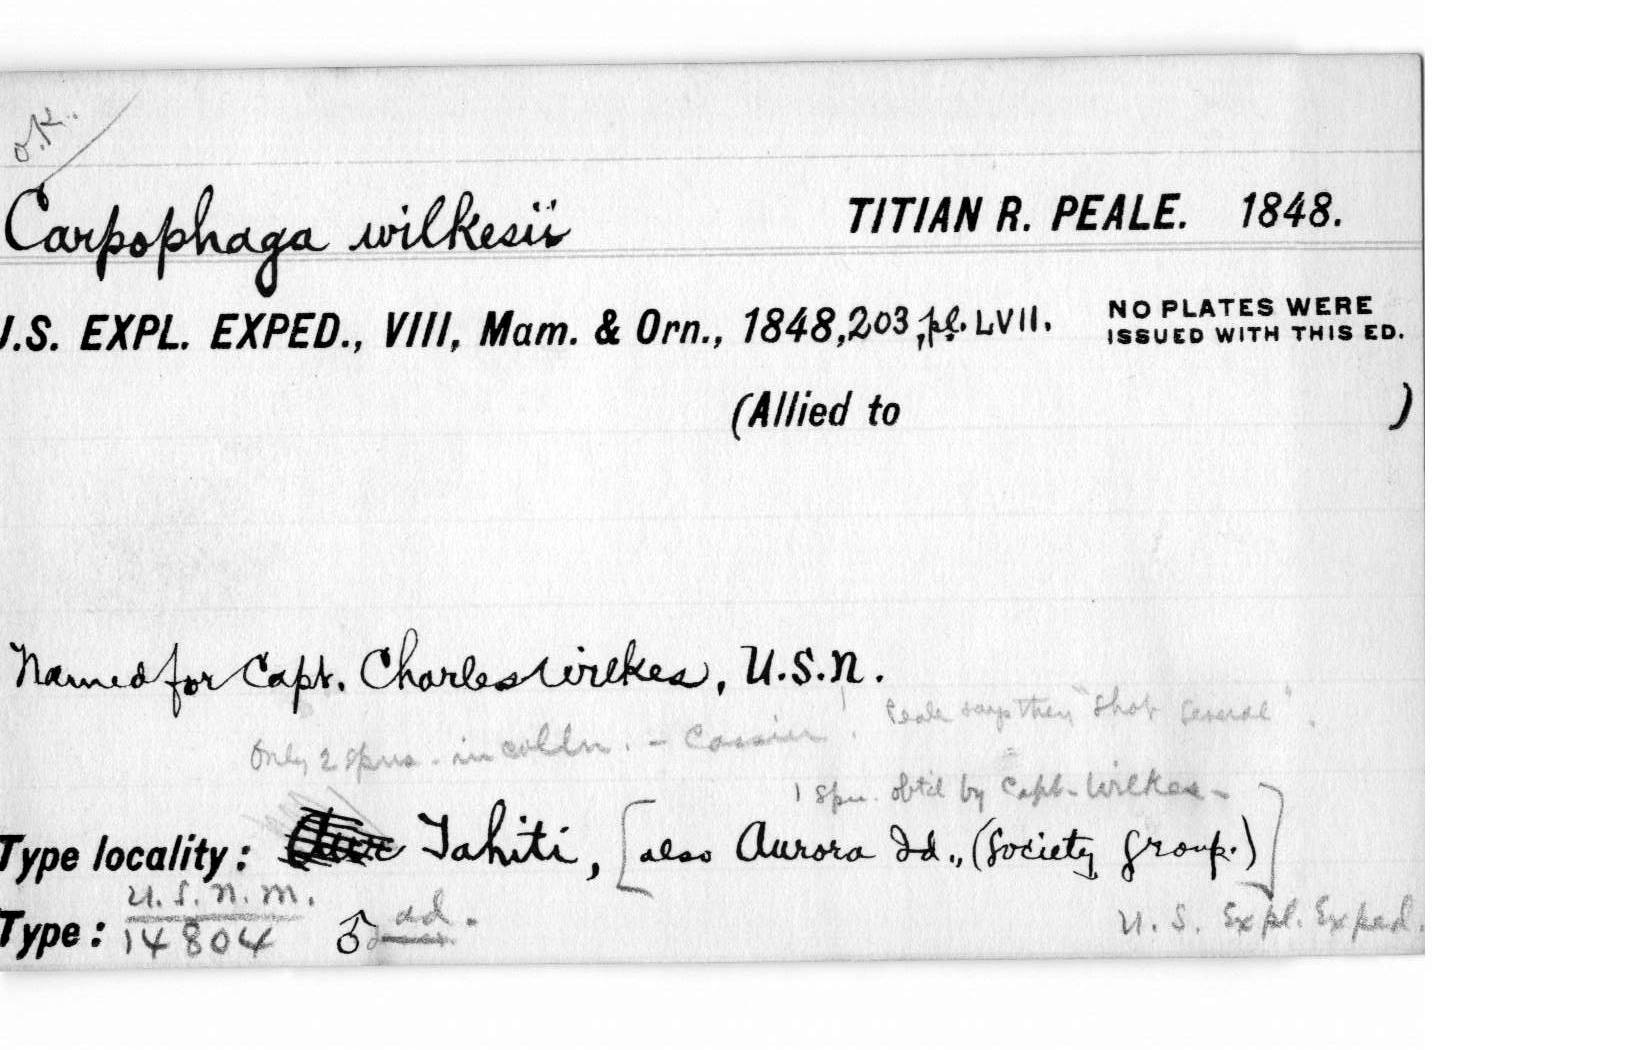 O.K.
Carpophaga wilkesii TITIAN R. PEALE. 1848.
U.S. EXPL. EXPED., VIII, Mam. & Orn., 1848, 203, pl. LVII. NO PLATES WERE
ISSUED WITH THIS ED.
(Allied to )
Named for Capt. Charles Wilkes, U.S.N.
Peale says they "shot several".
Only 2 spns. in colln. - Cassin.
1 spn. obt'd by Capt. Wilkes -
Type locality: Tahiti, [also Aurora Id., (Society Group.)]
U.S.N.M.
Type: 14804 ♂ ad. U.S. Expl. Exped.